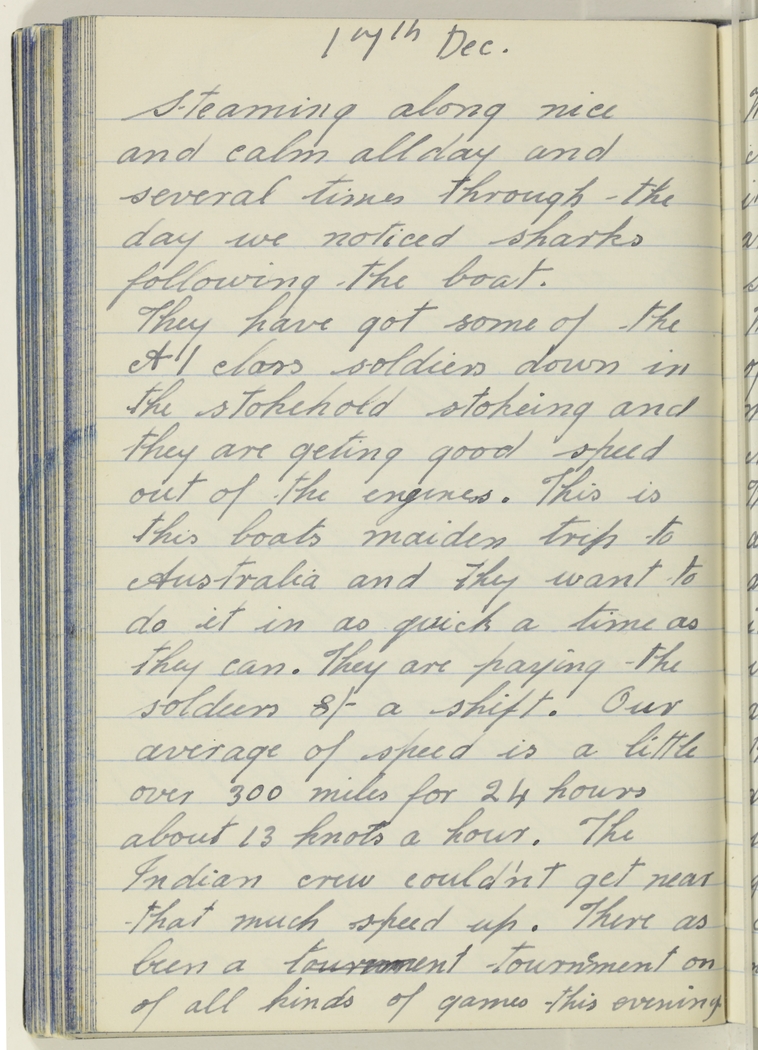 17th Dec.
Steaming along nice
and calm all day and
several times through the
day we noticed sharks
following the boat.
They have got some of the
A1 class soldiers down in
the stokehold stokeing and
they are geting good speed
out of the engines. This is
this boats maiden trip to
Australia and they want to
do it in as quick a time as
they can. They are paying the
soldiers 8/- a shift. Our
average of speed is a little
over 300 miles for 24 hours
about 13 knots a hour. The
Indian crew could'nt get near
that much speed up. There as
been a tournment on
of all kinds of games this evening